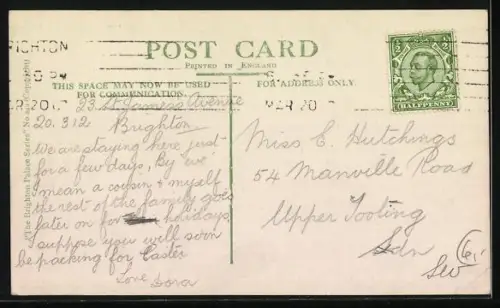 BRIGHTON
MAR 20 12
POST CARD
PRINTED IN ENGLAND
THIS SPACE MAY NOW BE USED
FOR COMMUNICATION.
FOR ADDRESS ONLY.
MAR 20
HALFPENNY
"The Brighton Palace Series"
23 St James's Avenue
20.3.12 Brighton
We are staying here just
for a few days, By 'we'
I mean a cousin & myself
the rest of the family goes
later on for holidays
I suppose you will soon
be packing for Easter
Love
Dora
Miss E. Hutchings
54 Manville Road
Upper Tooting
Ldn
SW
6/-